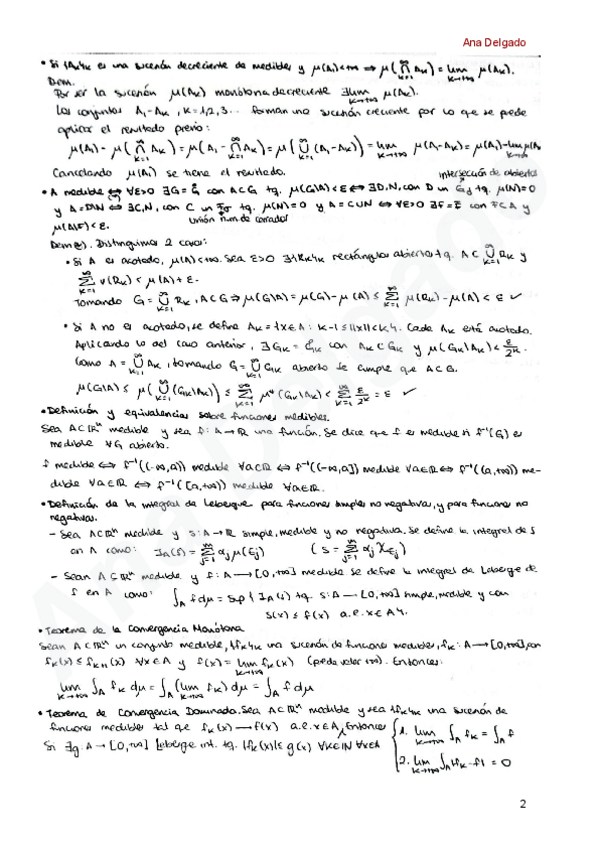 Ana Delgado
• Si {Ak}k es una sucesión decreciente de medibles y μ(A₁)<+∞ ⇒ μ(⋂_{k=1}^∞ Ak) = lim_{k→+∞} μ(Ak).
Dem.
Por ser la sucesión μ(Ak) monótona decreciente ∃lim_{k→+∞} μ(Ak).
Los conjuntos A₁-Ak, k=1,2,3... forman una sucesión creciente por lo que se puede
aplicar el resultado previo:
μ(A₁) - μ(⋂_{k=1}^∞ Ak) = μ(A₁ - ⋂_{k=1}^∞ Ak) = μ(⋃_{k=1}^∞ (A₁-Ak)) = lim_{k→+∞} μ(A₁-Ak) = μ(A₁) - lim_{k→∞} μ(Ak
Cancelando μ(A₁) se tiene el resultado.
intersección de abiertos
• A medible ⇔ ∀ε>0 ∃G=G̊, con A⊂G tq. μ(G\A)<ε ⇔ ∃D,N, con D un Gδ tq. μ(N)=0
y A=D\N ⇔ ∃C,N, con C un Fσ tq. μ(N)=0 y A=C∪N ⇔ ∀ε>0 ∃F=F̄ con F⊂A y
unión num de cerrados
μ(A\F)<ε.
Dem. Distinguimos 2 casos:
• Si A es acotado, μ(A)<+∞. Sea ε>0 ∃{Rk}k rectángulos abiertos tq. A⊂⋃_{k=1}^∞ Rk y
∑_{k=1}^∞ v(Rk) < μ(A)+ε.
Tomando G=⋃_{k=1}^∞ Rk, A⊂G ⇒ μ(G\A) = μ(G)-μ(A) ≤ ∑_{k=1}^∞ μ(Rk)-μ(A) < ε ✓
• Si A no es acotado, se define Ak={x∈A: k-1≤||x||<k}. Cada Ak está acotado.
Aplicando lo del caso anterior, ∃Gk=G̊k con Ak⊂Gk y μ(Gk\Ak)<ε/2^k.
Como A=⋃_{k=1}^∞ Ak, tomando G=⋃_{k=1}^∞ Gk abierto se cumple que A⊂G.
μ(G\A) ≤ μ(⋃_{k=1}^∞ (Gk\Ak)) ≤ ∑_{k=1}^∞ μ*(Gk\Ak) < ∑_{k=1}^∞ ε/2^k = ε ✓
• Definición y equivalencias sobre funciones medibles.
Sea A⊂ℝⁿ medible y sea f: A→ℝ una función. Se dice que f es medible si f⁻¹(G) es
medible ∀G abierto.
f medible ⇔ f⁻¹((-∞,a)) medible ∀a∈ℝ ⇔ f⁻¹((-∞,a]) medible ∀a∈ℝ ⇔ f⁻¹((a,+∞)) me-
dible ∀a∈ℝ ⇔ f⁻¹([a,+∞)) medible ∀a∈ℝ.
• Definición de la integral de Lebesgue para funciones simples no negativas, y para funciones no
negativas.
- Sea A⊂ℝⁿ medible y s: A→ℝ simple, medible y no negativa. Se define la integral de s
en A como: I_A(s)=∑_{j=1}^m αj μ(Ej) (s=∑_{j=1}^m αj χ_{Ej})
- Sean A⊂ℝⁿ medible y f: A→[0,+∞] medible se define la integral de Lebesgue de
f en A como: ∫_A f dμ = sup{I_A(s) tq. s:A→[0,+∞) simple, medible y con
s(x)≤f(x) a.e. x∈A}.
• Teorema de la Convergencia Monótona
Sean A⊂ℝⁿ un conjunto medible, {fk}k una sucesión de funciones medibles, fk: A→[0,+∞], con
fk(x)≤fk+1(x) ∀x∈A y f(x)=lim_{k→+∞} fk(x) (puede valer +∞). Entonces:
lim_{k→+∞} ∫_A fk dμ = ∫_A (lim_{k→+∞} fk) dμ = ∫_A f dμ
• Teorema de Convergencia Dominada. Sea A⊂ℝⁿ medible y sea {fk}k una sucesión de
funciones medibles tal que fk(x)→f(x) a.e. x∈A, Entonces
Si ∃g:A→[0,+∞] Lebesgue int. tq. |fk(x)|≤g(x) ∀k∈ℕ ∀x∈A
1. lim_{k→+∞} ∫_A fk = ∫_A f
2. lim_{k→+∞} ∫_A |fk-f| = 0
2